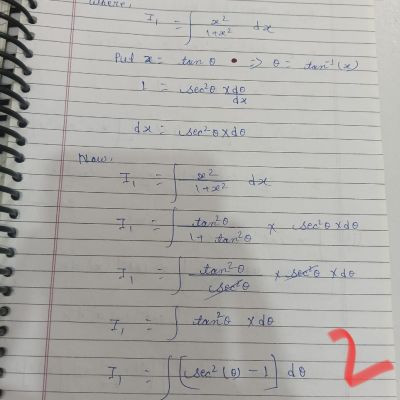 where,
I₁ = ∫ x²/(1+x²) dx
Put x = tan θ • ⇒ θ = tan⁻¹(x)
1 = sec²θ × dθ/dx
dx = sec²θ × dθ
Now,
I₁ = ∫ x²/(1+x²) dx
I₁ = ∫ tan²θ/(1 + tan²θ) × sec²θ × dθ
I₁ = ∫ tan²θ/sec²θ × sec²θ × dθ
I₁ = ∫ tan²θ × dθ
I₁ = ∫ [sec²(θ) − 1] dθ
2